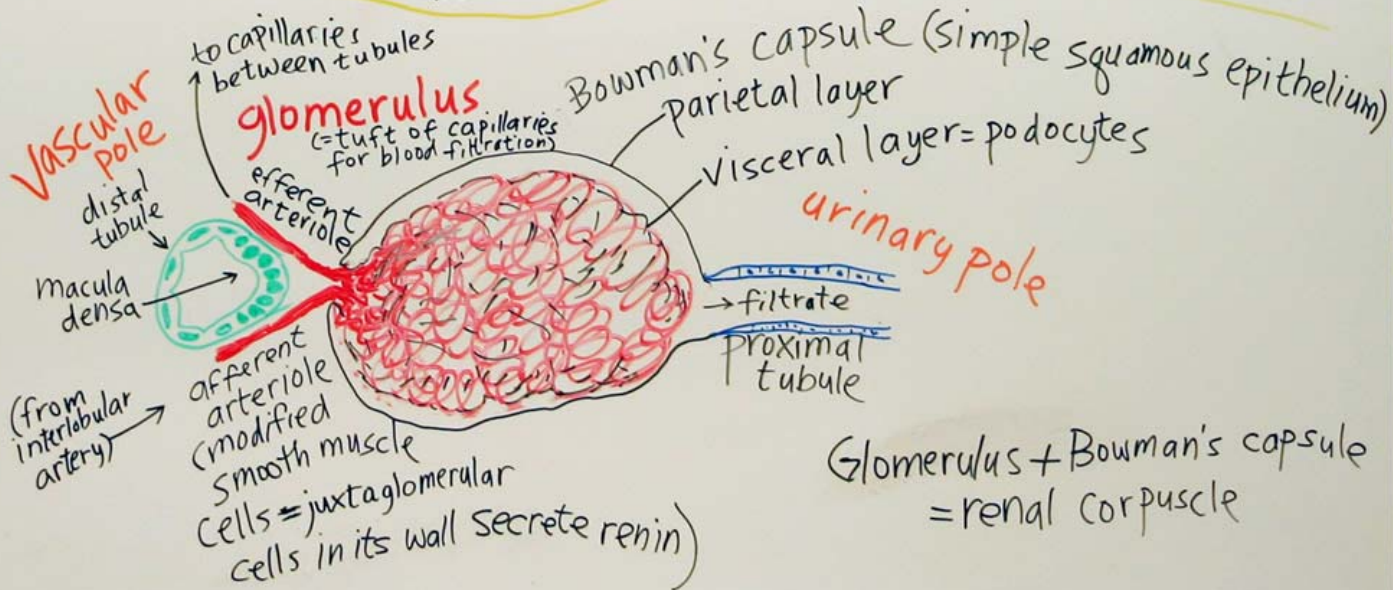 to capillaries
between tubules
vascular
pole
glomerulus
(=tuft of capillaries
for blood filtration)
Bowman's capsule (simple squamous epithelium)
parietal layer
visceral layer=podocytes
urinary pole
distal
tubule
efferent
arteriole
macula
densa
→filtrate
proximal
tubule
(from
interlobular
artery)
afferent
arteriole
(modified
smooth muscle
cells=juxtaglomerular
cells in its wall secrete renin)
Glomerulus+Bowman's capsule
=renal corpuscle